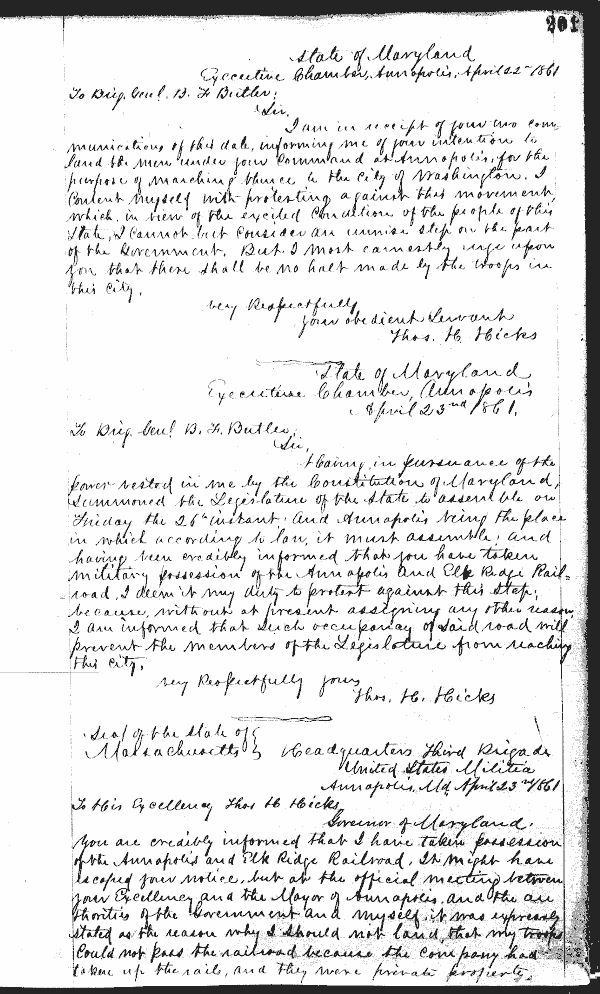 201
State of Maryland
Executive Chamber, Annapolis, April 22nd 1861
To Brig. Genl. B. F. Butler;
Sir,
I am in receipt of your two com-
munications of this date, informing me of your intention to
land the men under your command at Annapolis, for the
purpose of marching thence to the City of Washington. I
content myself with protesting against this movement,
which, in view of the excited condition of the people of this
State, I cannot but consider an unwise step on the part
of the Government. But I most earnestly urge upon
you that there shall be no halt made by the troops in
this City.
Very Respectfully
Your obedient Servant
Thos. H. Hicks
State of Maryland
Executive Chamber, Annapolis
April 23rd 1861.
To Brig. Genl. B. F. Butler,
Sir,
Having in pursuance of the
power vested in me by the Constitution of Maryland,
summoned the Legislature of the State to assemble on
Friday the 26th instant; and Annapolis being the place
in which according to law, it must assemble; and
having been credibly informed that you have taken
military possession of the Annapolis and Elk Ridge Rail-
road, I deem it my duty to protest against this step;
because, without at present assigning any other reason,
I am informed that such occupancy of said road will
prevent the members of the Legislature from reaching
this City.
Very Respectfully yours
Thos. H. Hicks
Seal of the State of }
Massachusetts } Headquarters Third Brigade
United States Militia
Annapolis, Md. April 23rd 1861
To His Excellency Thos H Hicks,
Governor of Maryland.
You are credibly informed that I have taken possession
of the Annapolis and Elk Ridge Railroad. It might have
escaped your notice, but at the official meeting between
your Excellency and the Mayor of Annapolis, and the au
thorities of the Government and myself, it was expressly
stated as the reason why I should not land, that my troops
could not pass the railroad because the company had
taken up the rails, and they were private property.